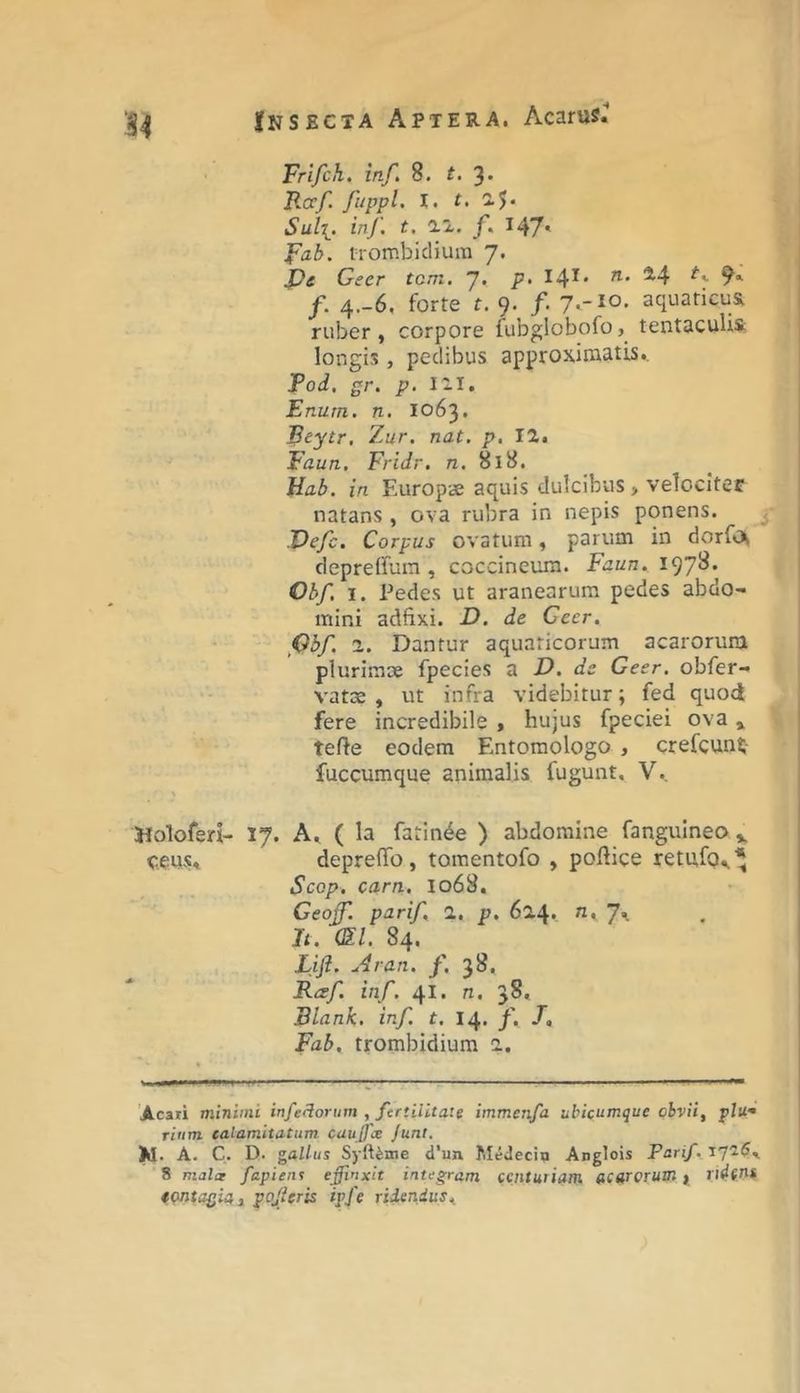 34 INSECTA APTERA. Acarus.
Friſch. inſ. 8. t. 3.
Rœſ. ſuppl. 1. t. 25.
Sulz. inſ. t. 22. f. 147.
Fab. trombidium 7.
De Geer tom. 7. p. 141. n. 24 t. 9.
f. 4.-6, forte t. 9. f. 7.-10. aquaticus
ruber, corpore ſubgloboſo, tentaculis
longis, pedibus approximatis.
Pod. gr. p. 121.
Enum. n. 1063.
Beytr. Zur. nat. p. 12.
Faun. Fridr. n. 818.
Hab. in Europæ aquis dulcibus, velociter
natans, ova rubra in nepis ponens.
Deſc. Corpus ovatum, parum in dorſo
depreſſum, coccineum. Faun. 1978.
Obſ. 1. Pedes ut aranearum pedes abdo-
mini adfixi. D. de Geer.
Obſ. 2. Dantur aquaticorum acarorum
plurimæ ſpecies a D. de Geer. obſer-
vatæ, ut infra videbitur; ſed quod
fere incredibile, hujus ſpeciei ova,
teſte eodem Entomologo, creſcunt
ſuccumque animalis ſugunt. V.
Holoſeri- 17. A. ( la ſatinée ) abdomine ſanguineo,
ceus. depreſſo, tomentoſo, poſtice retuſo.
Scop. carn. 1068.
Geoff. pariſ. 2. p. 624. n. 7.
It. Œl. 84.
Liſt. Aran. f. 38.
Ræſ. inſ. 41. n. 38.
Blank. inſ. t. 14. f. J.
Fab. trombidium 2.
Acari minimi inſectorum, fertilitate immenſa ubicumque obvii, plu-
rium calamitatum cauſſæ ſunt.
M. A. C. D. gallus Syſtème d'un Médecin Anglois Pariſ. 1726.
8 malæ ſapiens effinxit integram centuriam acarorum, ridens
contagia, poſteris ipſe ridendus.